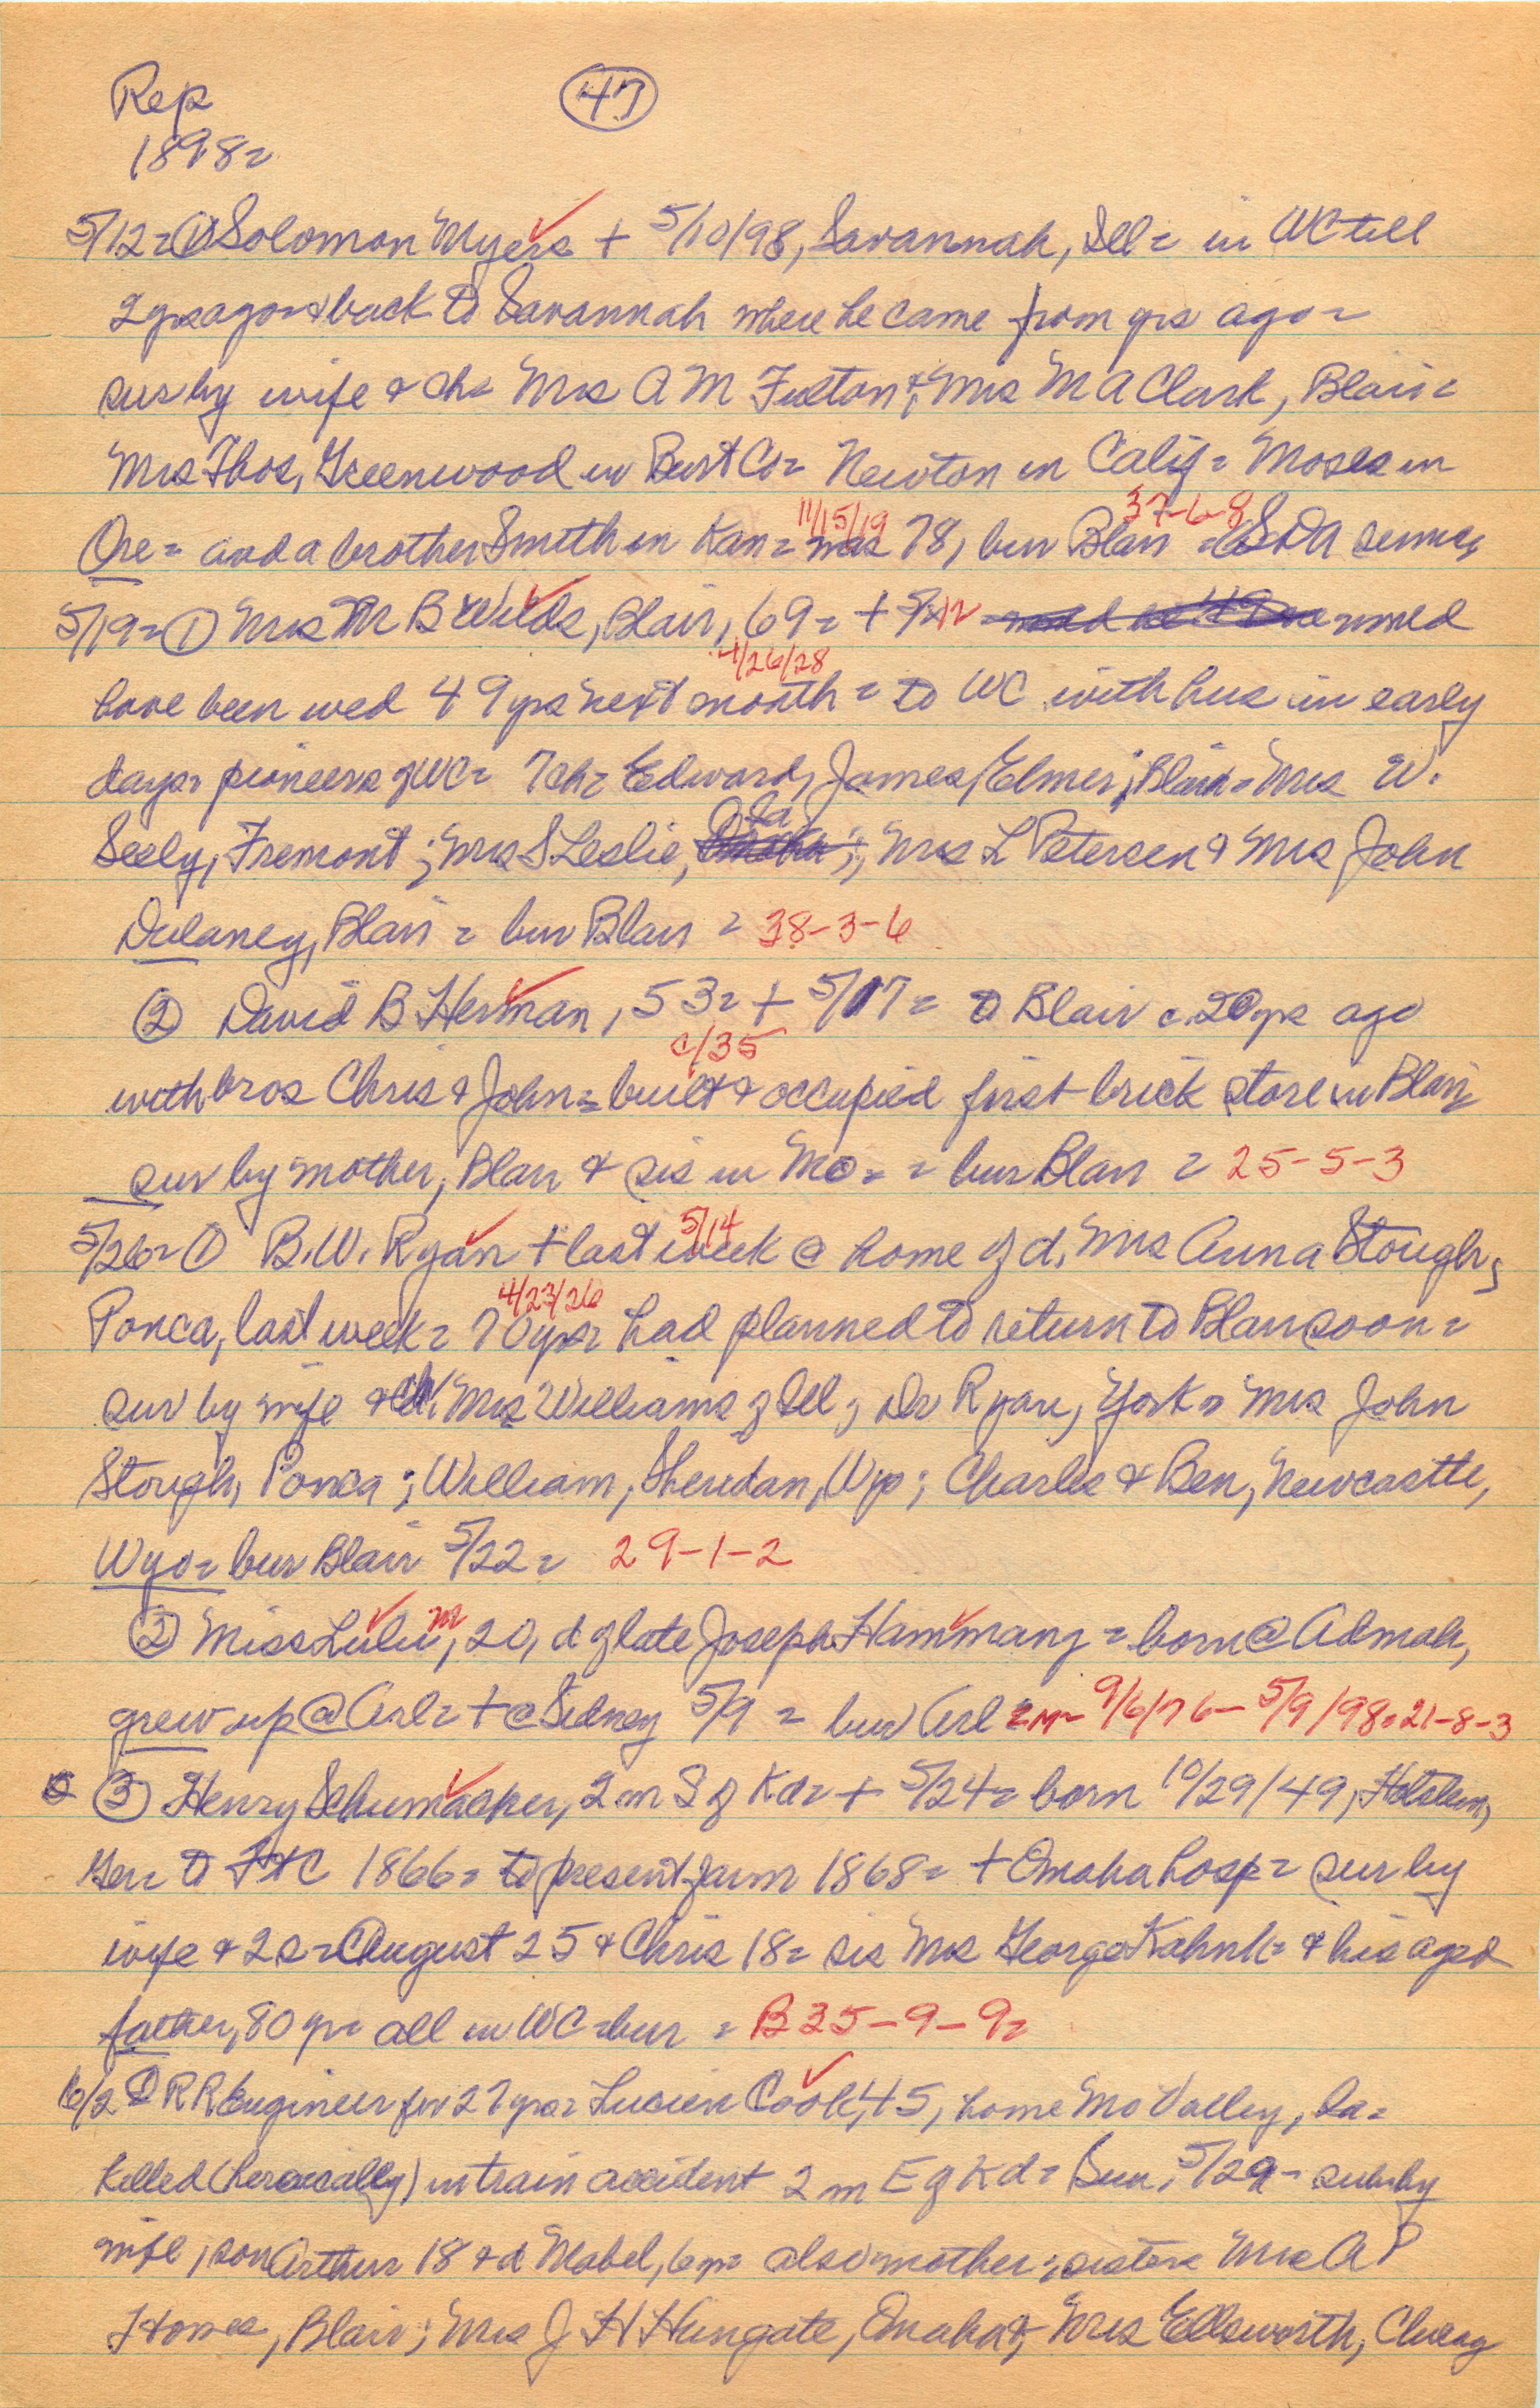 Rep (47)
1898=
5/12=① Solomon Myers + 5/10/98, Savannah, Ill= in WC till
2 yrs ago=& back to Savannah where he came from yrs ago=
sur by wife & ch= Mrs A M Fuston & Mrs M A Clark, Blair=
Mrs Thos. Greenwood in Burt Co= Newton in Calif= Moses in
11/15/19 37-6-8
Ore= and a brother Smith in Kan= was 78, bur Blair = SDA service
5/19=① Mrs M B Wilds, Blair, 69= + 5/12 wmed
4/26/28
have been wed 49 yrs next month= to WC with hus in early
days= pioneers of WC= 7 ch= Edward, James, Elmer, Blair= Mrs W.
Seely, Fremont; Mrs S Leslie, Ia; Mrs L Petersen & Mrs John
Dulaney, Blair = bur Blair = 38-3-6
② David B Herman, 53= + 5/17= to Blair c. 20 yrs ago
c/35
with bros Chris & John= built & occupied first brick store in Blair
sur by mother, Blair & sis in Mo= = bur Blair = 25-5-3
5/14
5/26=① B.W. Ryan + last week @ home of d. Mrs Anna Stough,
4/23/26
Ponca, last week= 70 yrs= had planned to return to Blair soon=
sur by wife & ch. Mrs Williams of Ill; Dr Ryan, York= Mrs John
Stough, Ponca; William, Sheridan, Wyo; Charles & Ben, Newcastle,
Wyo= bur Blair 5/22= 29-1-2
② Miss Lulu M, 20, d of late Joseph Hammang = born @ Admah,
grew up @ Arl= + @ Sidney 5/9 = bur Arl 9/6/76- 5/9/98= 21-8-3
③ Henry Schumacher, 2 m S of Kd= + 5/24= born 10/29/49, Holstein,
Ger= to FtC 1866= to present farm 1868= + Omaha hosp= sur by
wife & 2 s= August 25 & Chris 18= sis Mrs George Kahnk= & his aged
father, 80 yr= all in WC =bur = B 35-9-9=
6/2① RR Engineer for 27 yrs= Lucien Cook, 45, home Mo Valley, Ia=
killed (heroically) in train accident 2 m E of Kd= Sun, 5/29- sur by
wife, son Arthur 18 & d Mabel, 6 yr= also mother; sisters Mrs A P
Howes, Blair; Mrs J H Hungate, Omaha &; Mrs Ellsworth, Chicag